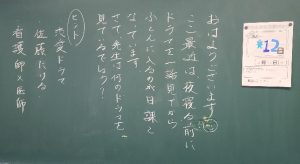 おはようございます
ここ最近は、夜寝る前に、
ドラマを一話見てから
ふとんに入るのが日課と
なっています。
さて、先生は何のドラマを
見ているでしょう?
ヒント
恋愛ドラマ
佐藤たける
看護師×医師
12
日